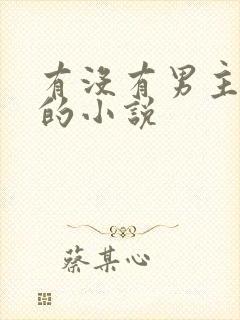 有沒有男主
的小說
蔡某心